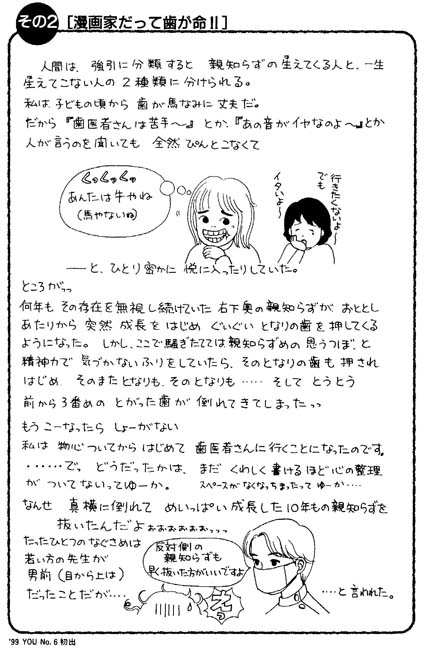 その2 [漫画家だって歯が命!!]
人間は、強引に分類すると 親知らずの生えてくる人と、一生
生えてこない人の 2種類に分けられる。
私は 子どもの頃から 歯が馬なみに 丈夫だ。
だから『歯医者さんは苦手〜』とか、『あの音がイヤなのよ〜』とか
人が言うのを聞いても 全然ぴんとこなくて
くっくっくっ
あんたは牛やね
(馬やないね)
行きたくないよ〜
でも
イタいよ〜
――と、ひとり密かに 悦に入ったりしていた。
ところがっ
何年も その存在を無視し続けていた 右下奥の親知らずが おととし
あたりから 突然 成長を はじめ ぐいぐい となりの歯を押してくる
ようになった。 しかし、ここで騒ぎたてては親知らずめの 思うつぼ、と
精神力で 気づかないふりをしていたら、そのとなりの歯も 押され
はじめ そのまたとなりも、そのとなりも ‥‥‥ そして とうとう
前から3番めの とがった歯が 倒れてきてしまったっっ
もう こーなったら しょーがない
私は 物心ついてから はじめて 歯医者さんに行くことになったのです。
‥‥‥で。 どうだったかは、 まだ くわしく書けるほど心の整理
が ついてないってゆーか。 スペースがなくなっちまったって ゆーか‥‥
なんせ 真横に倒れて めいっぱい成長した10年もの親知らずを
抜いたんだよおおおおおおっっっ
たったひとつのなぐさめは
若い方の先生が
男前(目から上は)
だったことだが‥‥
反対側の
親知らずも
早く抜いた方がいいですよ
え゛っ
‥‥と言われた。
'99 YOU No.6 初出